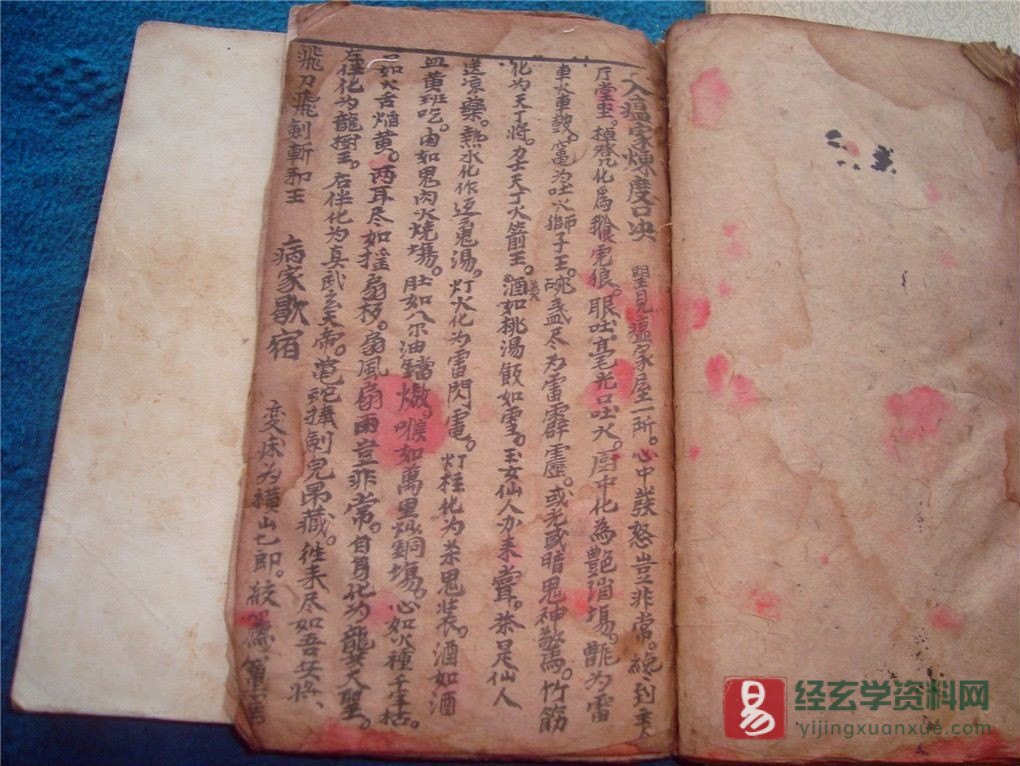 入瘟家煉度口决 望見瘟家屋一所。心中發怒豈非常。縂到来人
厅堂坐。 化為 虎狼。眼吐毫光口吐火。厨中化為艷 塲。 為雷
車火車 。 為吐火獅子王。碗盏尽为雷霹靂。或光或暗鬼神驚。竹筋
化为天丁將。力士天丁火箭王。酒如桃湯飯如雪。玉女仙人办来 。茶是仙人
送凉藥。熱水化作 鬼湯。灯火化为雷閃電。灯柱化为茶鬼装。酒如酒
血黄班吃。肉如鬼肉火燒塲。肚如八尔油鐺 。喉如萬里 銅塲。心如火種千年枯
如火舌焰黄。两耳尽如摇扇移。扇風扇雨豈非常。自身化为龍 大聖。
左伴化为龍樹王。右伴化为真武玄天帝。 蛇 劍鬼吊藏。往来尽如吾兵將、
飛刀飛劍斬邪王 病家歇宿 变床为横山七郎。
易
经玄学资料网
yijingxuanxue.com